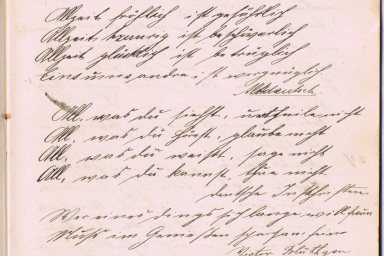 Allzeit fröhlich ist gefährlich
Allzeit traurig ist beschwerlich
Allzeit glücklich ist betrüglich
Eins ums andre ist vergnüglich
Altdeutsch.
All, was du siehst, urtheile nicht
All, was du hörst, glaube nicht
All, was du weißt, sage nicht
All, was du kannst, thue nicht
deutsche Inschriften
Wer eines dings sich lange will freun
Muß im Genießen sparsam sein
Victor Blüthgen